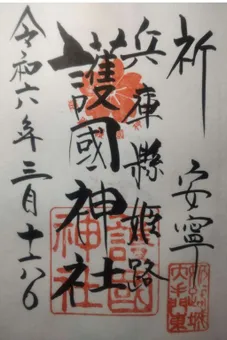 祈 安寧
兵庫縣姫路
護國神社
令和六年三月十六日
護國
神社